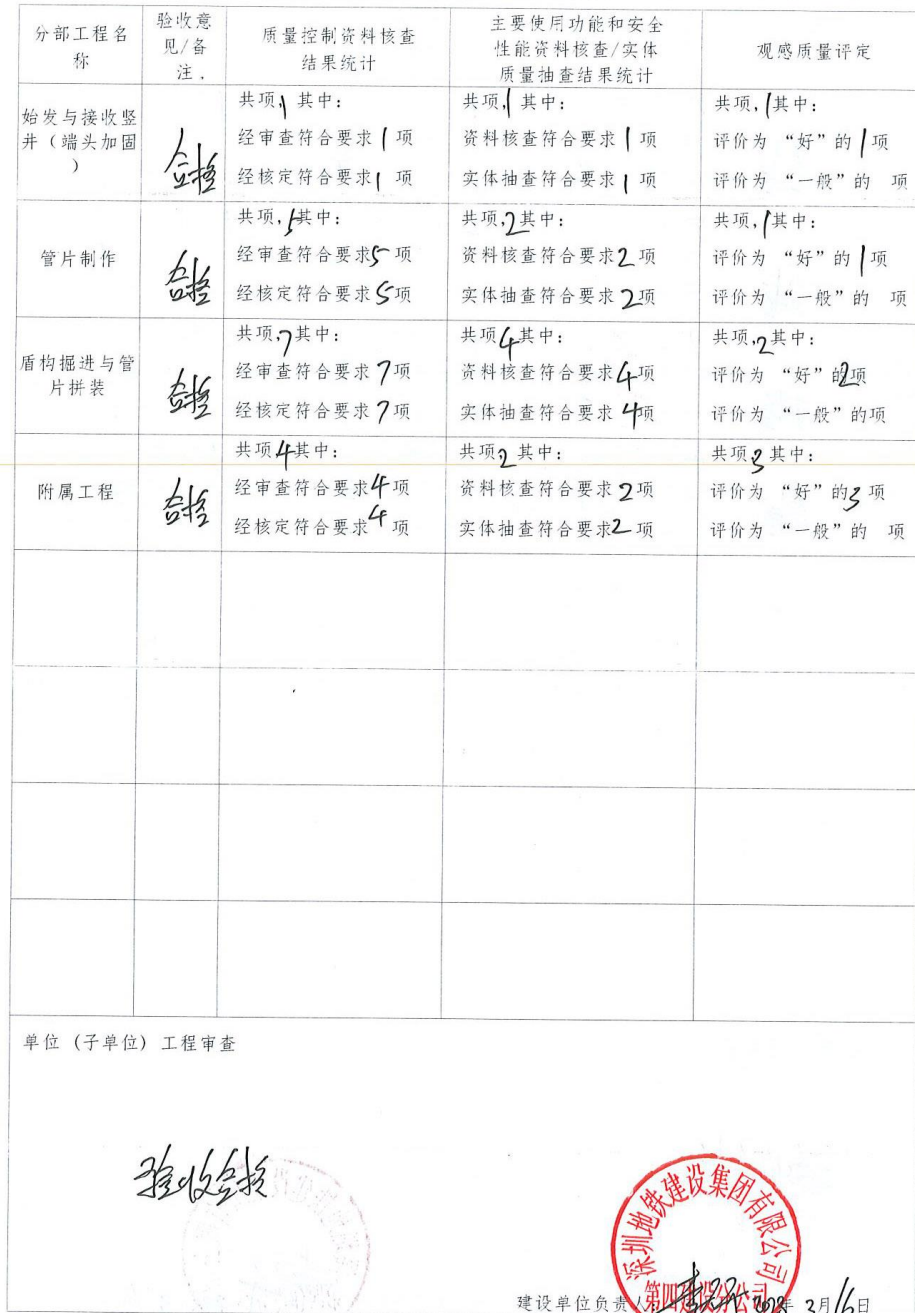 分部工程名
称
验收意
见/备
注.
质量控制资料核查
结果统计
主要使用功能和安全
性能资料核查/实体
质量抽查结果统计
观感质量评定
始发与接收竖
井（端头加固
）
合格
共项,1 其中:
经审查符合要求1项
经核定符合要求1 项
共项,1 其中:
资料核查符合要求1 项
实体抽查符合要求1 项
共项,1其中:
评价为 “好”的1项
评价为 “一般”的 项
管片制作
合格
共项,5其中:
经审查符合要求5 项
经核定符合要求5项
共项,2其中:
资料核查符合要求2 项
实体抽查符合要求 2项
共项,1其中:
评价为 “好”的1项
评价为 “一般”的 项
盾构掘进与管
片拼装
合格
共项,7其中:
经审查符合要求 7项
经核定符合要求 7项
共项4其中:
资料核查符合要求4项
实体抽查符合要求 4项
共项,2其中:
评价为 “好”的2项
评价为 “一般”的项
附属工程
合格
共项,4其中:
经审查符合要求4项
经核定符合要求4 项
共项,2 其中:
资料核查符合要求 2项
实体抽查符合要求2 项
共项,3 其中:
评价为 “好”的3 项
评价为 “一般”的 项
单位（子单位）工程审查
验收合格
深圳地铁建设集团有限公司
第四建设分公司
建设单位负责人: 年 2月16日